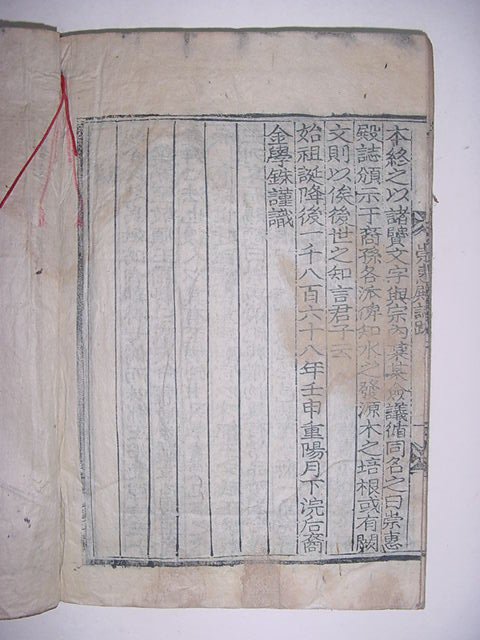 本終之以諸賢文字與宗內僉員僉議循同名之曰崇惠
殿誌頒示于裔孫各派俾知水之發源木之培根或有闕
文則以俟後世之知言君子云
始祖誕降後一千八百六十八年壬申重陽月下浣后裔
金學銖謹識
崇惠殿誌跋